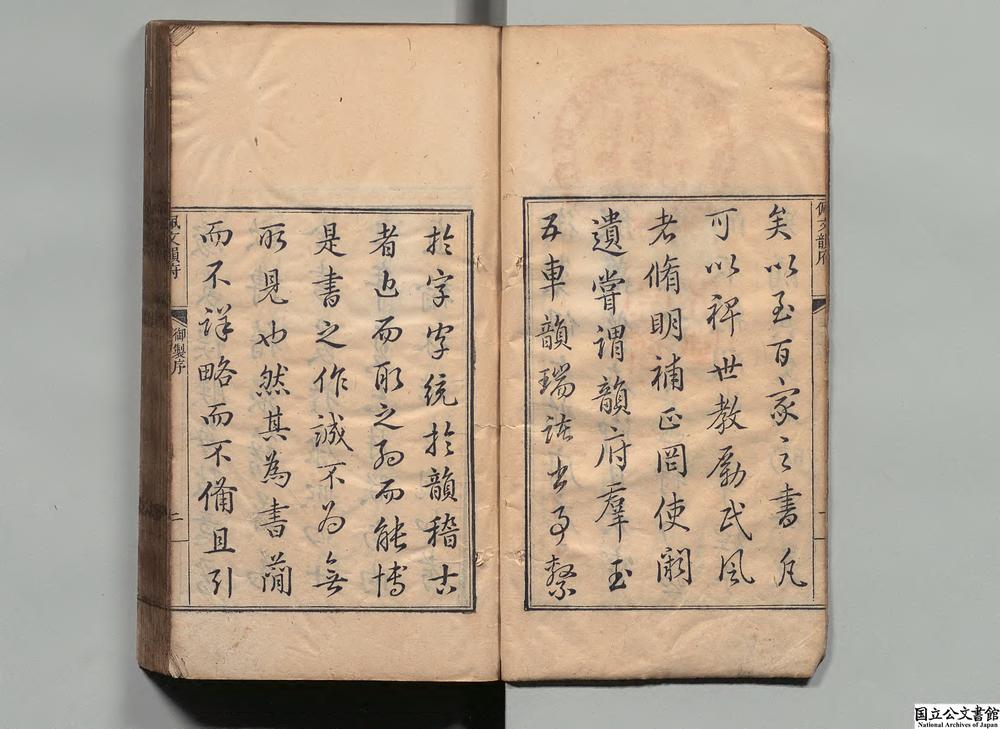 矣以至百家之書凡
可以裨世教勵民風
者脩明補正罔使闕
遺嘗謂韻府羣玉
五車韻瑞諸書事繫
於字字統於韻稽古
者近而取之約而能博
是書之作誠不為無
所見也然其為書簡
而不詳略而不備且引
佩文韻府
佩文韻府
御製序
二
国立公文書館
National Archives of Japan